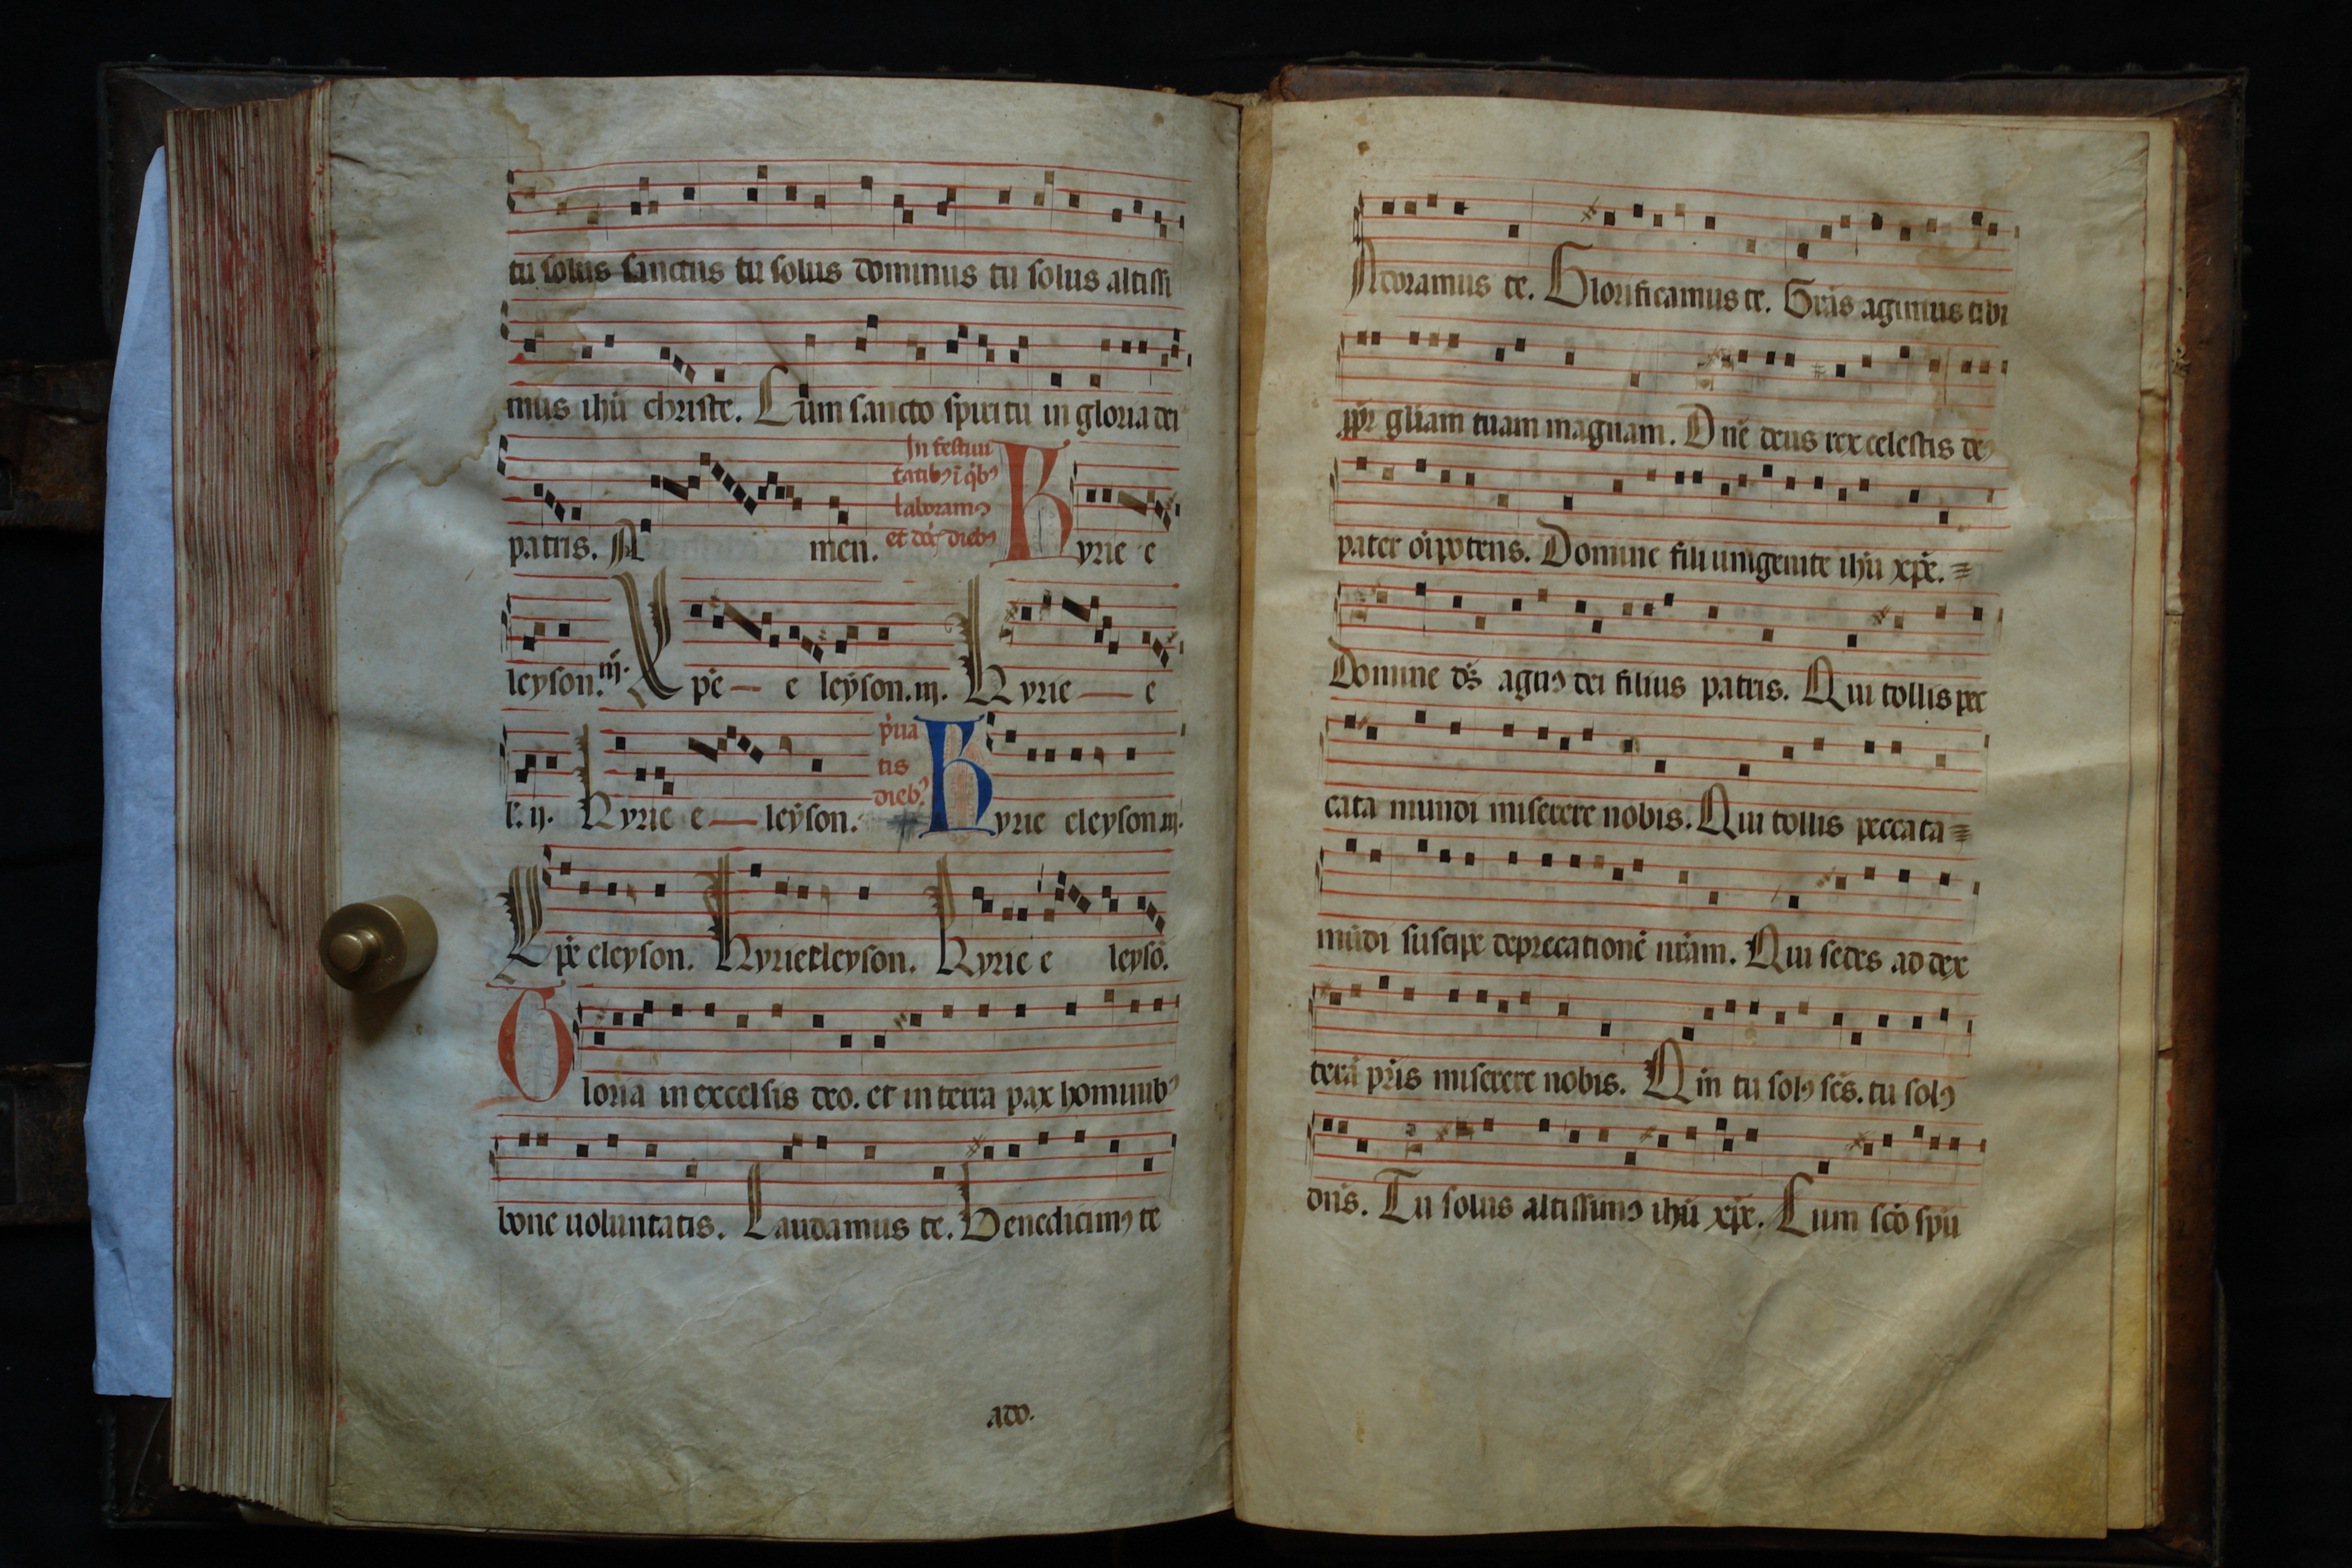 tu solus sanctus tu solus dominus tu solus altissi
mus ihū christe. Cum sancto spiritu in gloria dei
patris. A men.
In festiui
tatibꝰ ī q̇bꝰ
laboramꝰ
et diebꝰ
Kyrie e
leyson. iij. Xpē — e leyson. iij. Kyrie — e
l. ij. Kyrie e — leyson.
p̍ua
tis
diebꝰ
Kyrie eleyson iij.
Xpē eleyson. Kyrie eleyson. Kyrie e leysō.
Gloria in excelsis deo. et in terra pax hominibꝰ
bone uoluntatis. Laudamus te. Benedicimꝰ te
ado.
Adoramus te. Glorificamus te. Grās agimus tibi
ppr̄ gl̄iam tuam magnam. Dn̄e deus rex celestis deꝰ
pater oīpotens. Domine fili unigenite ihū xpē.
Domine ds̄ agnꝰ dei filius patris. Qui tollis pec
cata mundi miserere nobis. Qui tollis peccata
mūdi suscipe deprecationē nr̄am. Qui sedes ad dex
terā pr̄is miserere nobis. Qm̄ tu solꝰ scs̄. tu solꝰ
dn̄s. Tu solus altissimꝰ ihū xpē. Cum scō spū